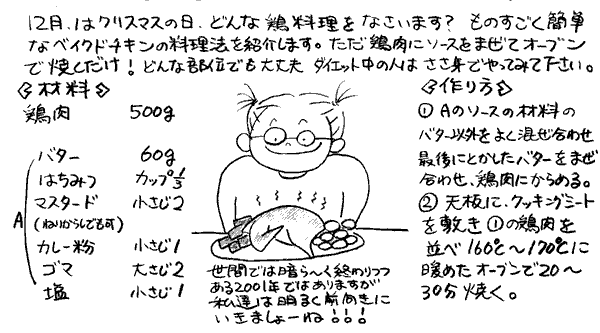 12月、はクリスマスの日、どんな鶏料理をなさいます? ものすごく簡単
なベイクドチキンの料理法を紹介します。ただ鶏肉にソースをまぜてオーブン
で焼くだけ!どんな部位でも大丈夫 ダイエット中の人はささ身でやってみて下さい。
<材料>
鶏肉 500g
A
バター 60g
はちみつ カップ1/3
マスタード 小さじ2
(ねりがらしでも可)
カレー粉 小さじ1
ゴマ 大さじ2
塩 小さじ1
世間では暗ら〜く終わりつつ
ある2001年ではありますが
私達は明るく前向きに
いきましょーね!!!
<作り方>
① Aのソースの材料の
バター以外をよく混ぜ合わせ
最後にとかしたバターをまぜ
合わせ、鶏肉にからめる。
② 天板に、クッキングシート
を敷き①の鶏肉を
並べ160℃〜170℃に
暖めたオーブンで20〜
30分焼く。